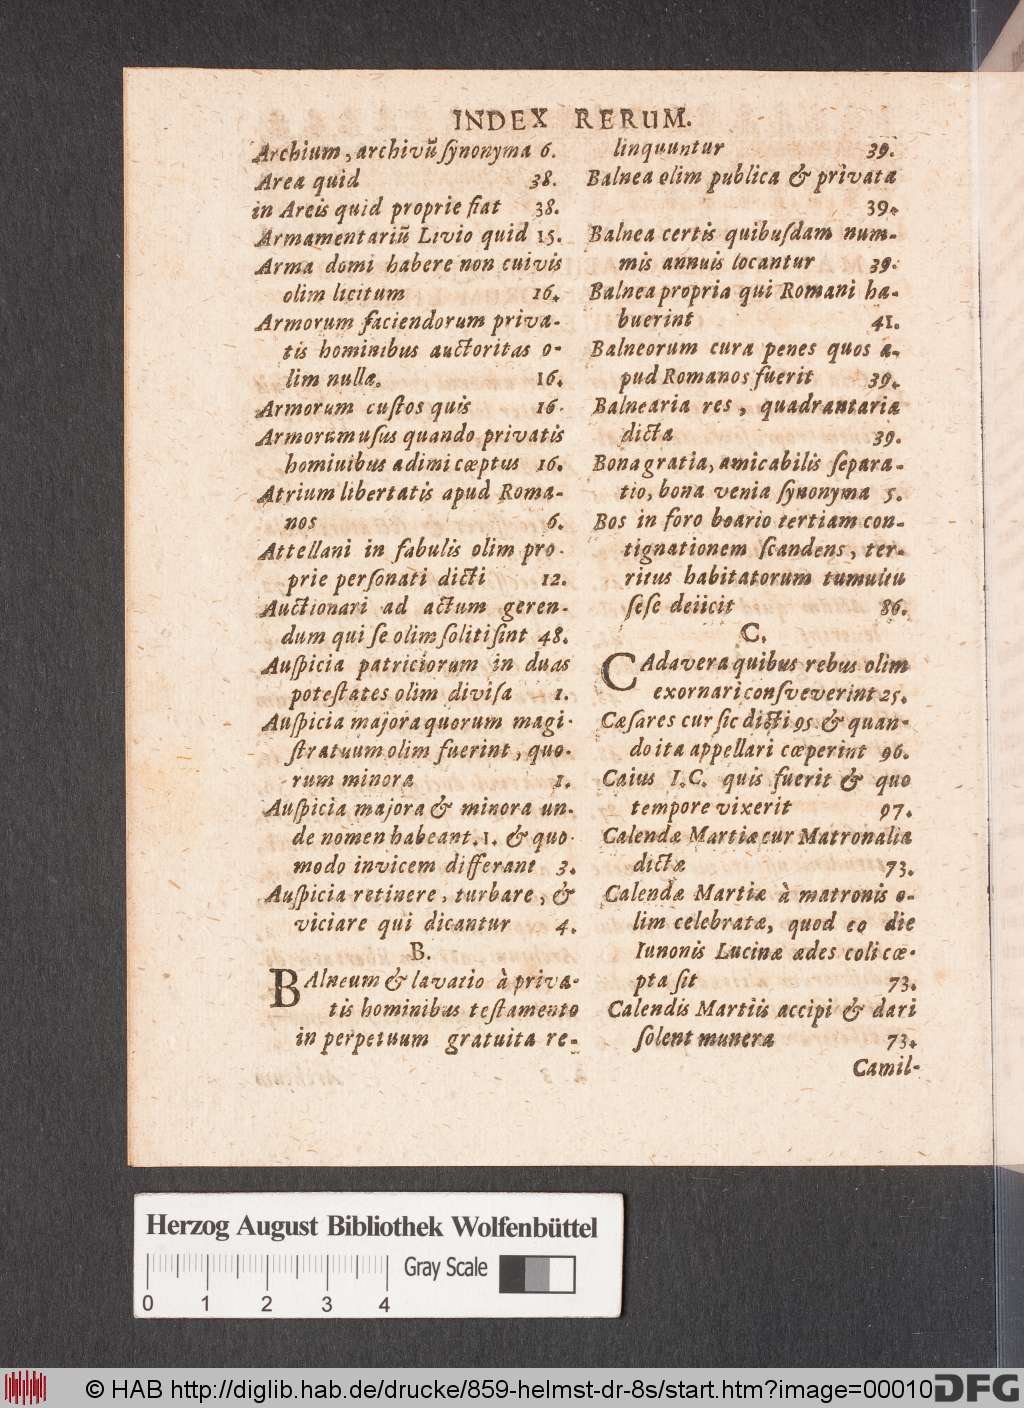 INDEX RERUM.
Archium, archivũ ſynonyma 6.
Area quid 38.
in Areis quid proprie fiat 38.
Armamentariũ Livio quid 15.
Arma domi habere non cuivis
olim licitum 16.
Armorum faciendorum priva-
tis hominibus auctoritas o-
lim nulla. 16.
Armorum cuſtos quis 16.
Armorum uſus quando privatis
hominibus adimi cœptus 16.
Atrium libertatis apud Roma-
nos 6.
Attellani in fabulis olim pro-
prie perſonati dicti 12.
Auctionari ad actum geren-
dum qui ſe olim ſoliti ſint 48.
Auſpicia patriciorum in duas
poteſtates olim diviſa 1.
Auſpicia majora quorum magi-
ſtratuum olim fuerint, quo-
rum minora 1.
Auſpicia majora & minora un-
de nomen habeant. 1. & quo-
modo invicem differant 3.
Auſpicia retinere, turbare, &
viciare qui dicantur 4.
B.
BAlneum & lavatio à priva-
tis hominibus teſtamento
in perpetuum gratuita re-
linquuntur 39.
Balnea olim publica & privata
39.
Balnea certis quibuſdam num-
mis annuis locantur 39.
Balnea propria qui Romani ha-
buerint 41.
Balneorum cura penes quos a-
pud Romanos fuerit 39.
Balnearia res, quadrantaria
dicta 39.
Bona gratia, amicabilis ſepara-
tio, bona venia ſynonyma 5.
Bos in foro boario tertiam con-
tignationem ſcandens, ter-
ritus habitatorum tumultu
ſeſe deiicit 86.
C.
CAdavera quibus rebus olim
exornari conſveverint 25.
Cæſares cur ſic dicti 95. & quan-
do ita appellari cœperint 96.
Caius I.C. quis fuerit & quo
tempore vixerit 97.
Calendæ Martiæ cur Matronalia
dictæ 73.
Calendæ Martiæ à matronis o-
lim celebratæ, quod eo die
Iunonis Lucinæ ædes coli cœ-
pta ſit 73.
Calendis Martiis accipi & dari
ſolent munera 73.
Camil-
Herzog August Bibliothek Wolfenbüttel
Gray Scale
0 1 2 3 4
© HAB http://diglib.hab.de/drucke/859-helmst-dr-8s/start.htm?image=00010
DFG